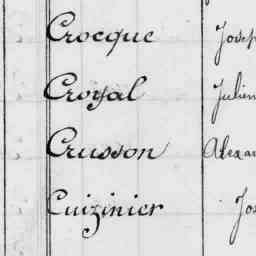 Crocque Josep
Croyal Julien
Crusson Alexan
Cuizinier Jos